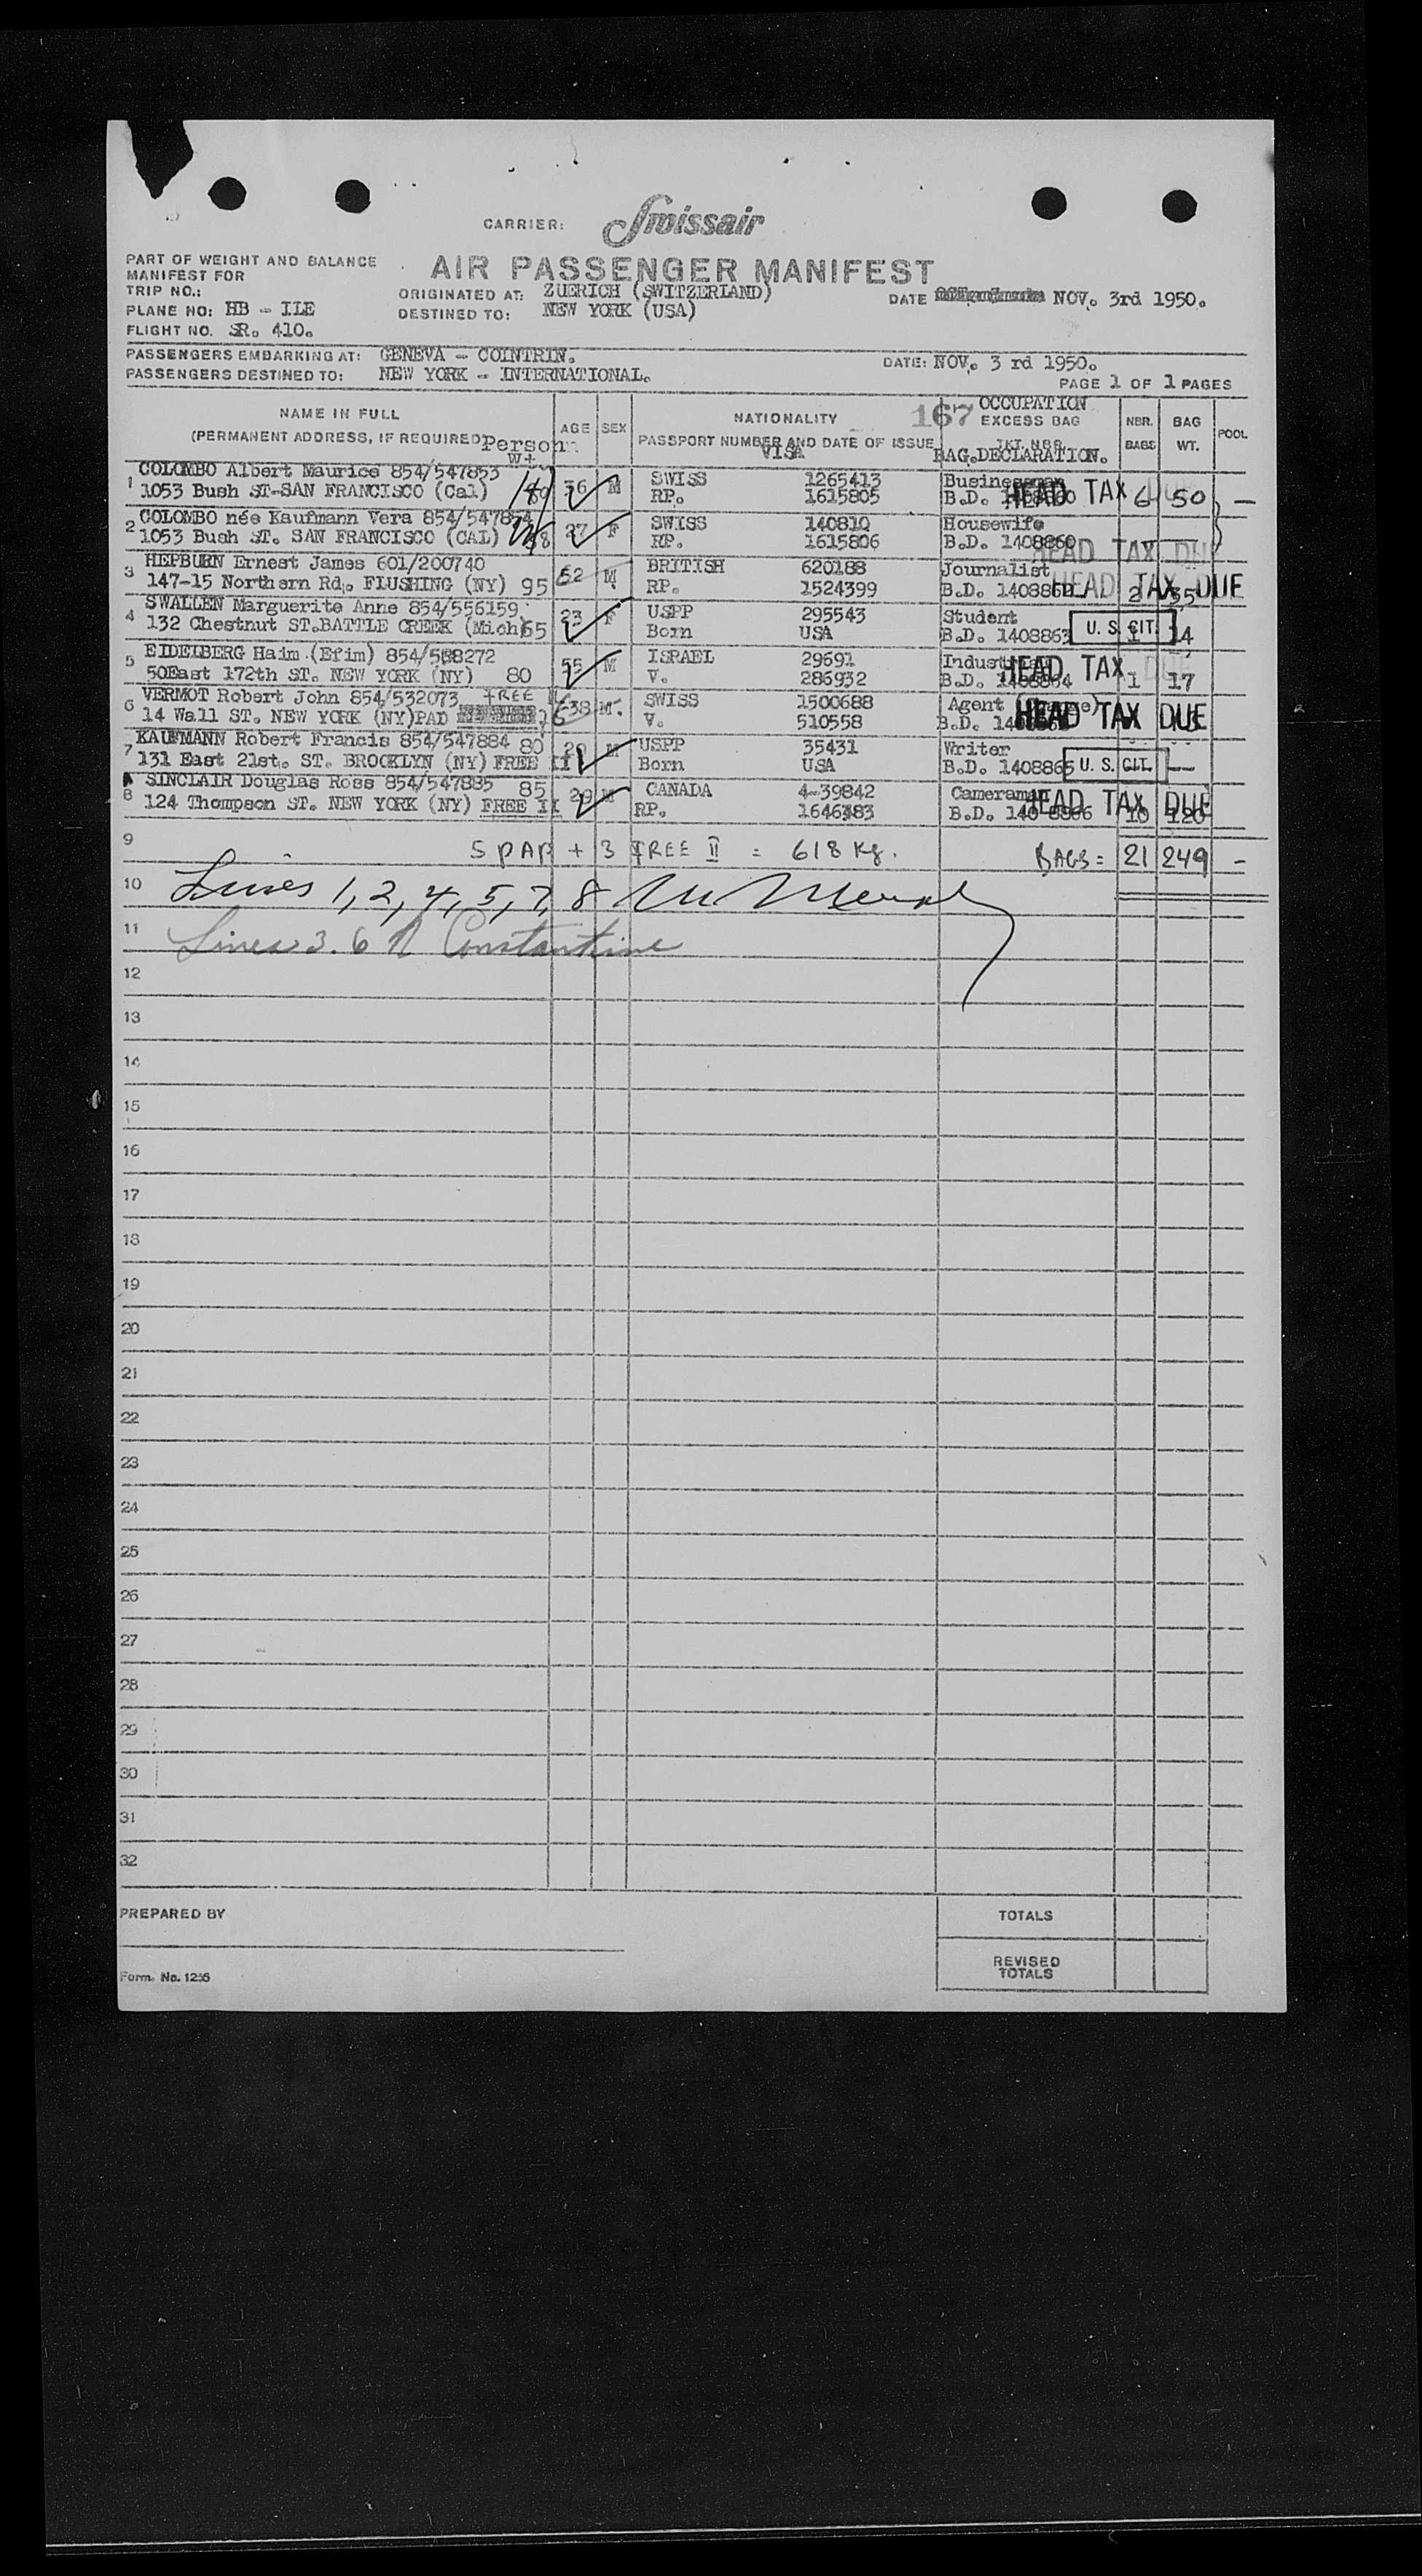 CARRIER: Swissair
AIR PASSENGER MANIFEST
PART OF WEIGHT AND BALANCE
MANIFEST FOR
TRIP NO.:
PLANE NO: HB - ILE
FLIGHT NO. SR. 410.
ORIGINATED AT: ZUERICH (SWITZERLAND)
DESTINED TO: NEW YORK (USA)
DATE NOV. 3rd 1950.
PASSENGERS EMBARKING AT: GENEVA - COINTRIN.
DATE: NOV. 3 rd 1950.
PASSENGERS DESTINED TO: NEW YORK - INTERNATIONAL.
PAGE 1 OF 1 PAGES
NAME IN FULL
(PERMANENT ADDRESS, IF REQUIRED)
Person
Wt
AGE
SEX
NATIONALITY
PASSPORT NUMBER AND DATE OF ISSUE
VISA
167
OCCUPATION
EXCESS BAG
TKT. NBR.
BAG.DECLARATION.
NBR.
BAGS
BAG
WT.
POOL
1 COLOMBO Albert Maurice 854/547853 36 M SWISS 1265413 Businessman
1053 Bush ST-SAN FRANCISCO (Cal) RP. 1615805 B.D. HEAD TAX 6 50 -
2 COLOMBO née Kaufmann Vera 854/547854 27 F SWISS 140810 Housewife
1053 Bush ST. SAN FRANCISCO (CAL) RP. 1615806 B.D. 1408860 HEAD TAX DUE
3 HEPBURN Ernest James 601/200740 52 M BRITISH 620188 Journalist
147-15 Northern Rd. FLUSHING (NY) 95 RP. 1524399 B.D. HEAD TAX DUE 2 35
4 SWALLEN Marguerite Anne 854/556159 23 F USPP 295543 Student
132 Chestnut ST.BATTLE CREEK (Mich) 65 Born USA B.D. 1408863 U. S. CIT. 1 14
5 EIDELBERG Haim (Efim) 854/558272 55 M ISRAEL 29691
50East 172th ST. NEW YORK (NY) 80 V. 286932 B.D. HEAD TAX DUE 1 17
6 VERMOT Robert John 854/532073 FREE 38 M. SWISS 1500688 Agent
14 Wall ST. NEW YORK (NY)PAD 76 V. 510558 B.D. HEAD TAX DUE
7 KAUFMANN Robert Francis 854/547884 80 29 M USPP 35431 Writer
131 East 21st. ST. BROCKLYN (NY) FREE II Born USA B.D. 1408865 U. S. CIT. -
8 SINCLAIR Douglas Ross 854/547885 85 29 M CANADA 4-39842 Cameraman
124 Thompson ST. NEW YORK (NY) FREE II RP. 1646383 B.D. HEAD TAX DUE 10 120
9 5 PAP + 3 FREE II = 618 Kg. BAGS = 21 249 -
10 Lines 1, 2, 4, 5, 7, 8
11 Lines 3. 6 Constantine
12
13
14
15
16
17
18
19
20
21
22
23
24
25
26
27
28
29
30
31
32
PREPARED BY
TOTALS
REVISED
TOTALS
Form. No. 1256